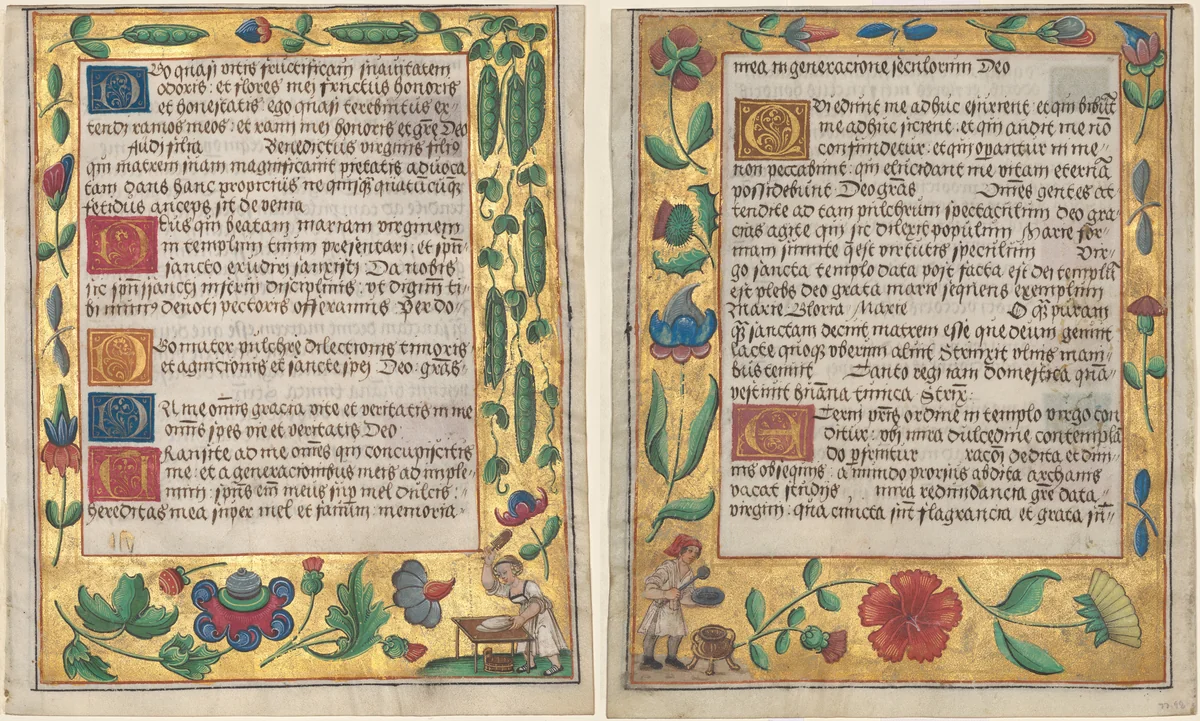 Ego quasi vitis fructificavi suavitatem
odoris: et flores mei fructus honoris
et honestatis ego quasi terebintus ex=
tendi ramos meos: et rami mei honoris et gr̃e Deo
Audi filia Benedictus virginis filio
qui matrem suam magnificavit pietatis advoca
tam dans hanc propicius ne quisq̃ quatũcũq̃
fetidus anceps sit de venia
Deus qui beatam mariam virginem
in templum tuum presentari: et spũ=
sancto erudiri sanxisti Da nobis
sic spũ sancti instrui disciplinis: ut digni ti=
bi devoti offeramus Per do=
Ego mater pulchre dilectionis timoris
et agnicionis et sancte spei Deo: gras=
In me omnis gracia vite et veritatis in me
omnis spes vie et veritatis Deo
Transite ad me omnes qui concupiscitis
me: et a generacionibus meis adimple=
mini: spũs em̃ meus sup mel dulcis:
hereditas mea super mel et favum: memoria=
mea in generacione seculorum Deo
Qui edunt me adhuc esurient: et qui bibũt
me adhuc sicient: et qui audit me nõ
confundetur: et qui operantur in me=
non peccabunt: qui elucidant me vitam eternã
possidebunt Deo gras Omnes gentes at
tendite ad tam pulchrum spectaculum Deo gra=
cias agite qui sic dilexit populum Marie for=
mam sumite q̃ est virtutis speculum Vir=
go sancta templo data post facta est dei templũ
est plebs deo grata marie sequens exemplum
Marie Gloria Marie O q̃ puram
q̃ sanctam decuit matrem esse que deum genuit
lacte quoq̃ uberum aluit Strinxit ulnis mani=
bus tenuit Tanto regi tam domestica qua=
vestivit hũana tunica Strix:
Eterni p̃ris ordine in templo virgo con
ditur: ubi mira dulcedine contempla
do p̃fruitur racõi dedita et divi=
nis obsequiis: a mundo prorsus abdita archanis
vacat studiis, mira redundancia gr̃e data=
virgini: qua cuncta sũt flagrancia et grata
77.98